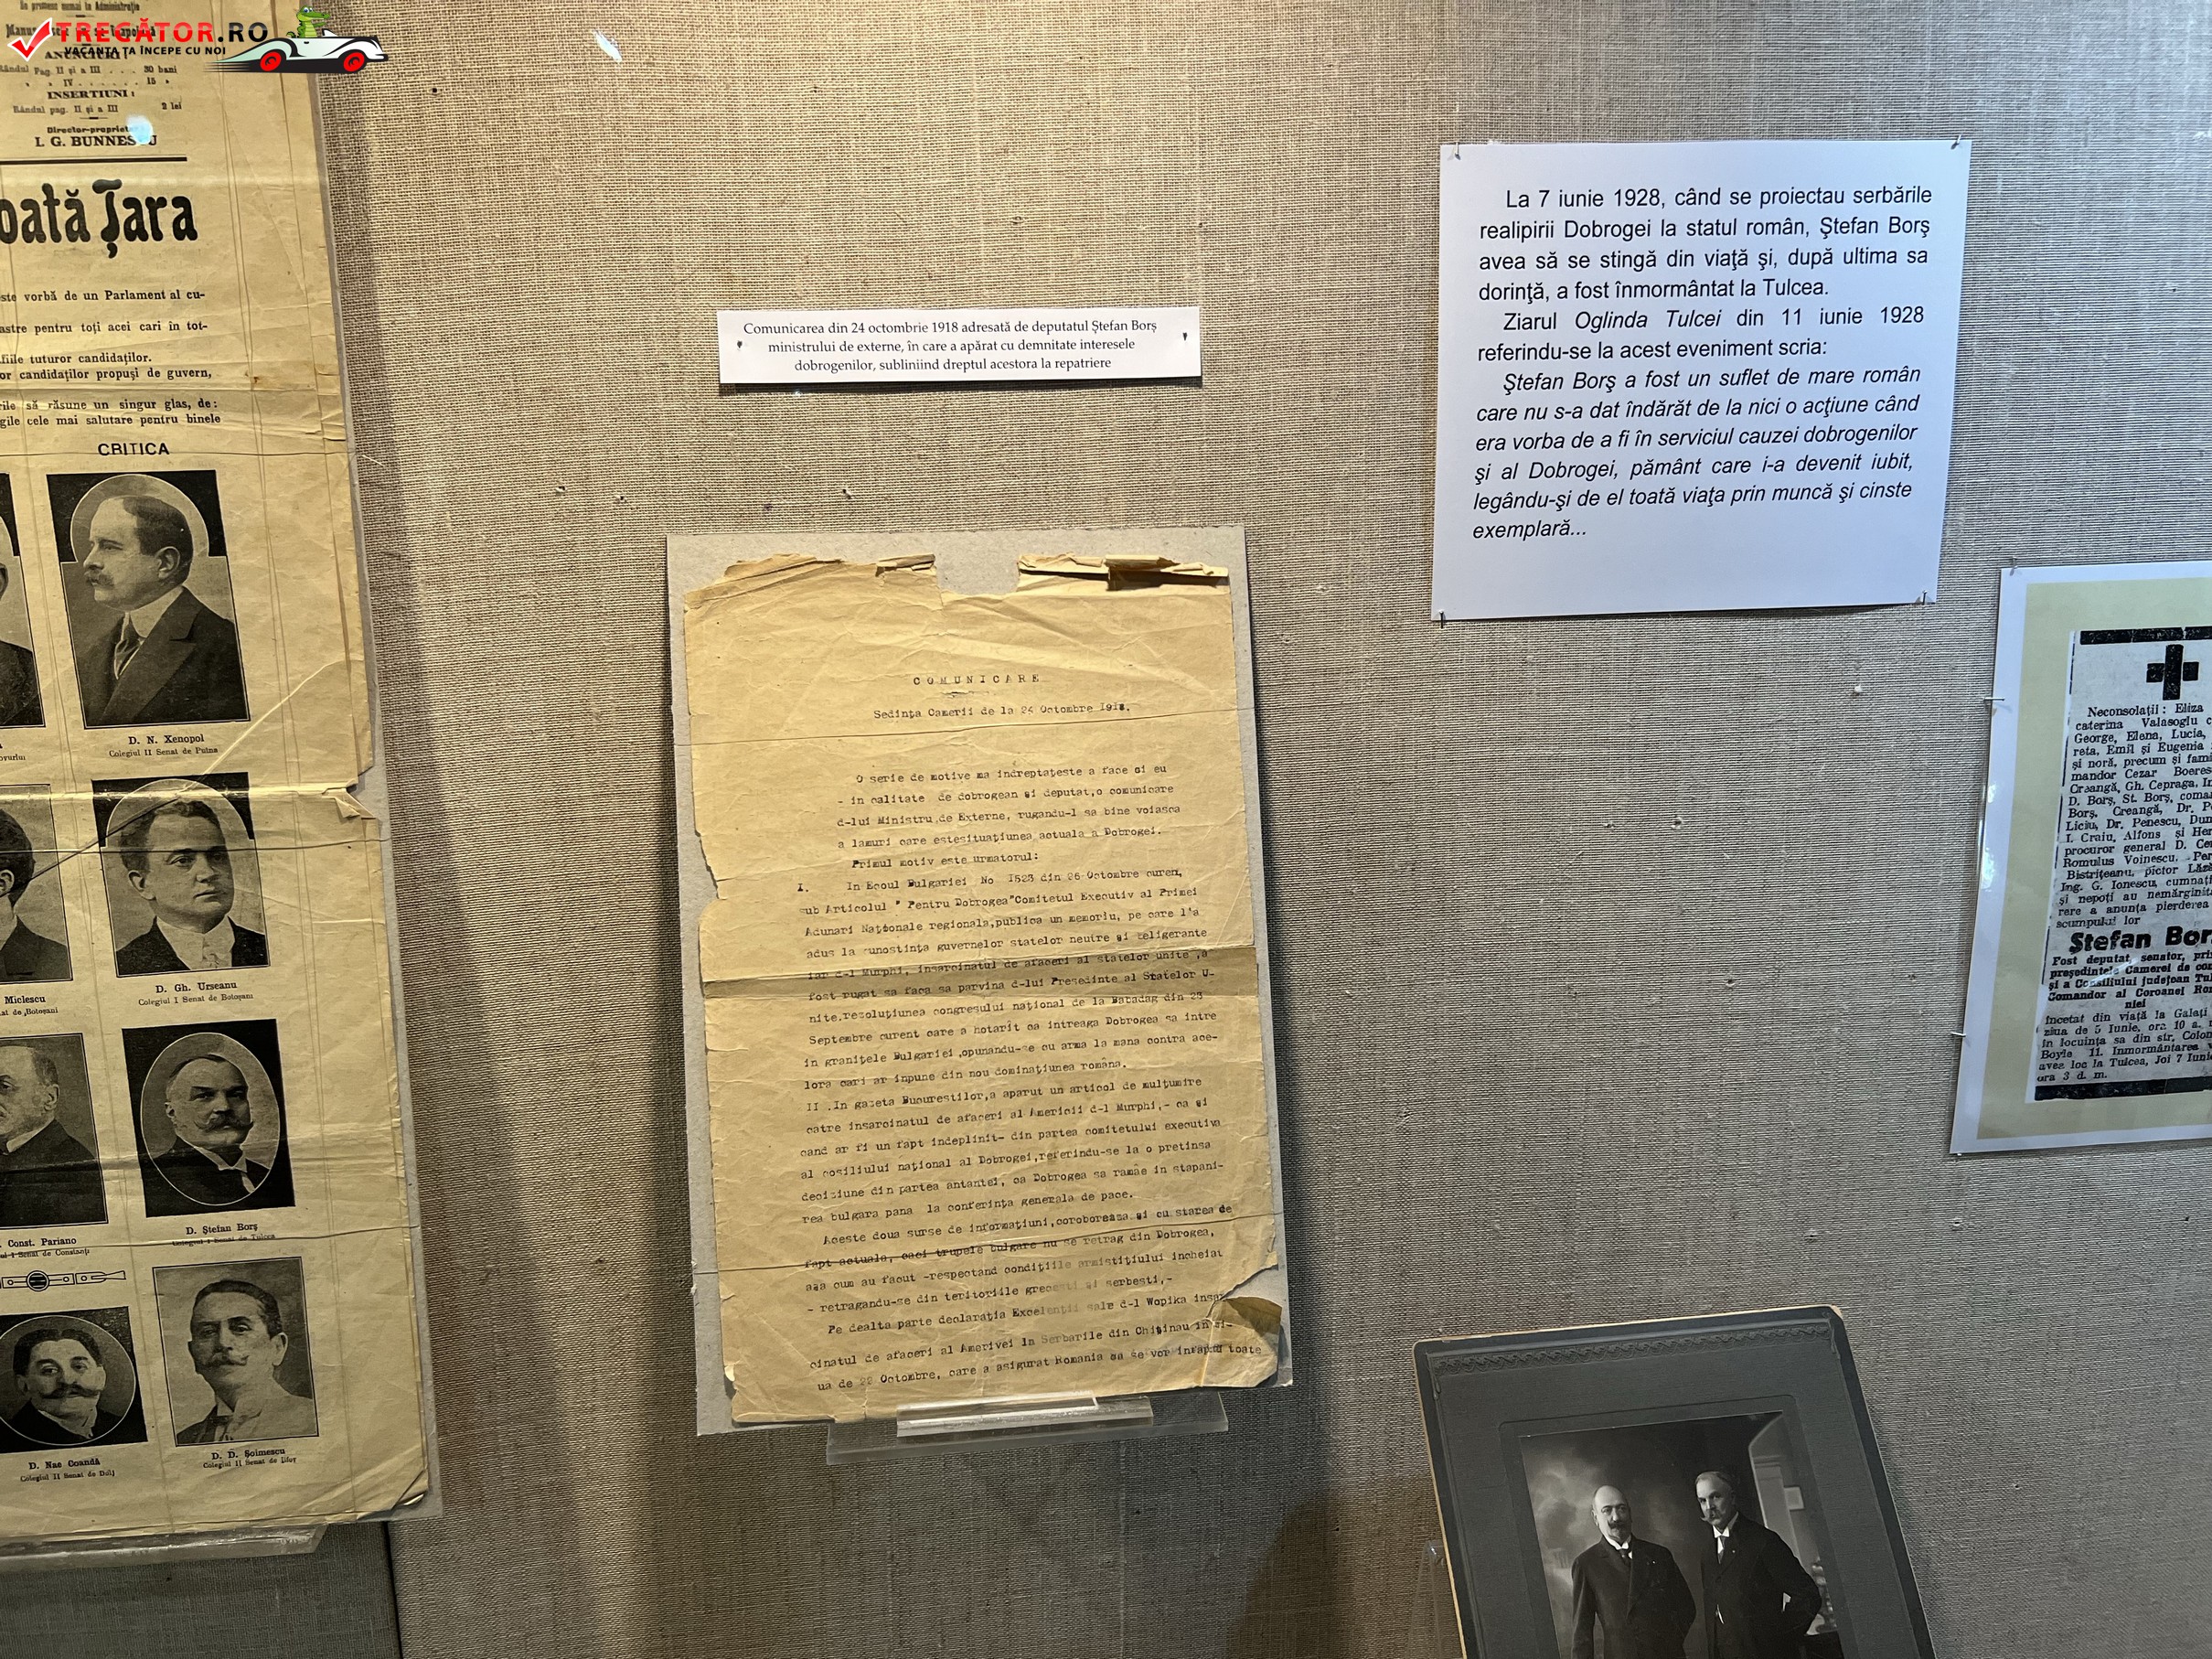 TREGĂTOR.RO
VACANȚA TA ÎNCEPE CU NOI
se primesc numai la Administrație
ANUNCIURI:
Rândul Pag. II și a III . . . 30 bani
" " IV . . . . . . 15 "
INSERTIUNI:
Rândul pag. II și a III 2 lei
Director-proprietar
I. G. BUNNESCU
oată Țara
ste vorbă de un Parlament al cu-
astre pentru toți acei cari în tot-
fiile tuturor candidaților.
or candidaților propuși de guvern,
rile să răsune un singur glas, de:
gile cele mai salutare pentru binele
CRITICA
D. N. Xenopol
Colegiul II Senat de Putna
Miclescu
at de Botoșani
D. Gh. Urseanu
Colegiul I Senat de Botoșani
Const. Pariano
ul I Senat de Constanța
D. Ștefan Borș
Colegiul I Senat de Tulcea
D. Nae Coandă
Colegiul II Senat de Dolj
D. D. Șoimescu
Colegiul II Senat de Ilfov
Comunicarea din 24 octombrie 1918 adresată de deputatul Ștefan Borș
ministrului de externe, în care a apărat cu demnitate interesele
dobrogenilor, subliniind dreptul acestora la repatriere
COMUNICARE
Sedința Camerii de la 24 Octombre 1918.
O serie de motive ma indreptațeste a face si eu
- in calitate de dobrogean și deputat,o comunicare
d-lui Ministru de Externe, rugandu-l sa bine voiasca
a lamuri care estesituațiunea actuala a Dobrogei.
Primul motiv este urmatorul:
I. In Ecoul Bulgariei No 1523 din 26 Octombre curent,
sub Articolul " Pentru Dobrogea"Comitetul Executiv al Primei
Adunari Naționale regionala,publica un memoriu, pe care l'a
adus la cunostința guvernelor statelor neutre și beligerante
iar d-l Murphi, insarcinatul de afaceri al statelor unite ,a
fost rugat sa faca sa parvina d-lui Presedinte al Statelor U-
nite,rezoluțiunea congresului național de la Babadag din 23
Septembre curent care a hotarit ca intreaga Dobrogea sa intre
in granițele Bulgariei ,opunandu-se cu arma la mana contra ace-
lora cari ar inpune din nou dominațiunea româna.
II .In gazeta Bucurestilor,a aparut un articol de mulțumire
catre insarcinatul de afaceri al Americii d-l Murphi,- ca și
cand ar fi un fapt indeplinit- din partea comitetului executiva
al cosiliului național al Dobrogei,referindu-se la o pretinsa
deciziune din partea antantei, ca Dobrogea sa ramâe in stapani-
rea bulgara pana la conferința generala de pace.
Aceste doua surse de informațiuni,coroboreaza și cu starea de
fapt actuala, caci trupele bulgare nu se retrag din Dobrogea,
așa cum au facut -respectand condițiile armistițiului incheiat
- retragandu-se din teritoriile grecesti si serbesti,-
Pe dealta parte declarația Excelenții sale d-l Wopika insar
cinatul de afaceri al Amerivei la Serbarile din Chișinau in zi-
ua de 22 Octombre, care a asigurat Romania ca se vor infaptui toate
La 7 iunie 1928, când se proiectau serbările
realipirii Dobrogei la statul român, Ștefan Borș
avea să se stingă din viață și, după ultima sa
dorință, a fost înmormântat la Tulcea.
Ziarul Oglinda Tulcei din 11 iunie 1928
referindu-se la acest eveniment scria:
Ștefan Borș a fost un suflet de mare român
care nu s-a dat îndărăt de la nici o acțiune când
era vorba de a fi în serviciul cauzei dobrogenilor
și al Dobrogei, pământ care i-a devenit iubit,
legându-și de el toată viața prin muncă și cinste
exemplară...
Neconsolații: Eliza
caterina Valasoglu
George, Elena, Lucia,
reta, Emil și Eugenia
și noră, precum și fami
mandor Cezar Boeres
Creangă, Gh. Cepraga, In
D. Borș, St. Borș, coma
Borș, Creangă, Dr. P
Liciu, Dr. Penescu, Dum
I. Craiu, Alfons și Her
procuror general D. Ce
Romulus Voinescu, Per
Bistrițeanu, pictor Lăz
Ing. G. Ionescu, cumnați
și nepoți au nemărginit
rere a anunța pierderea
scumpului lor
Ștefan Bor
Fost deputat, senator, pri
președintele Camerei de co
și a Consiliului județean Tul
Comandor al Coroanei Ro
niei
încetat din viață la Galați
ziua de 5 Iunie, ora 10 a.
în locuința sa din str. Colon
Boyle 11. Inmormântarea
avea loc la Tulcea, Joi 7 Iuni
ora 3 d. m.